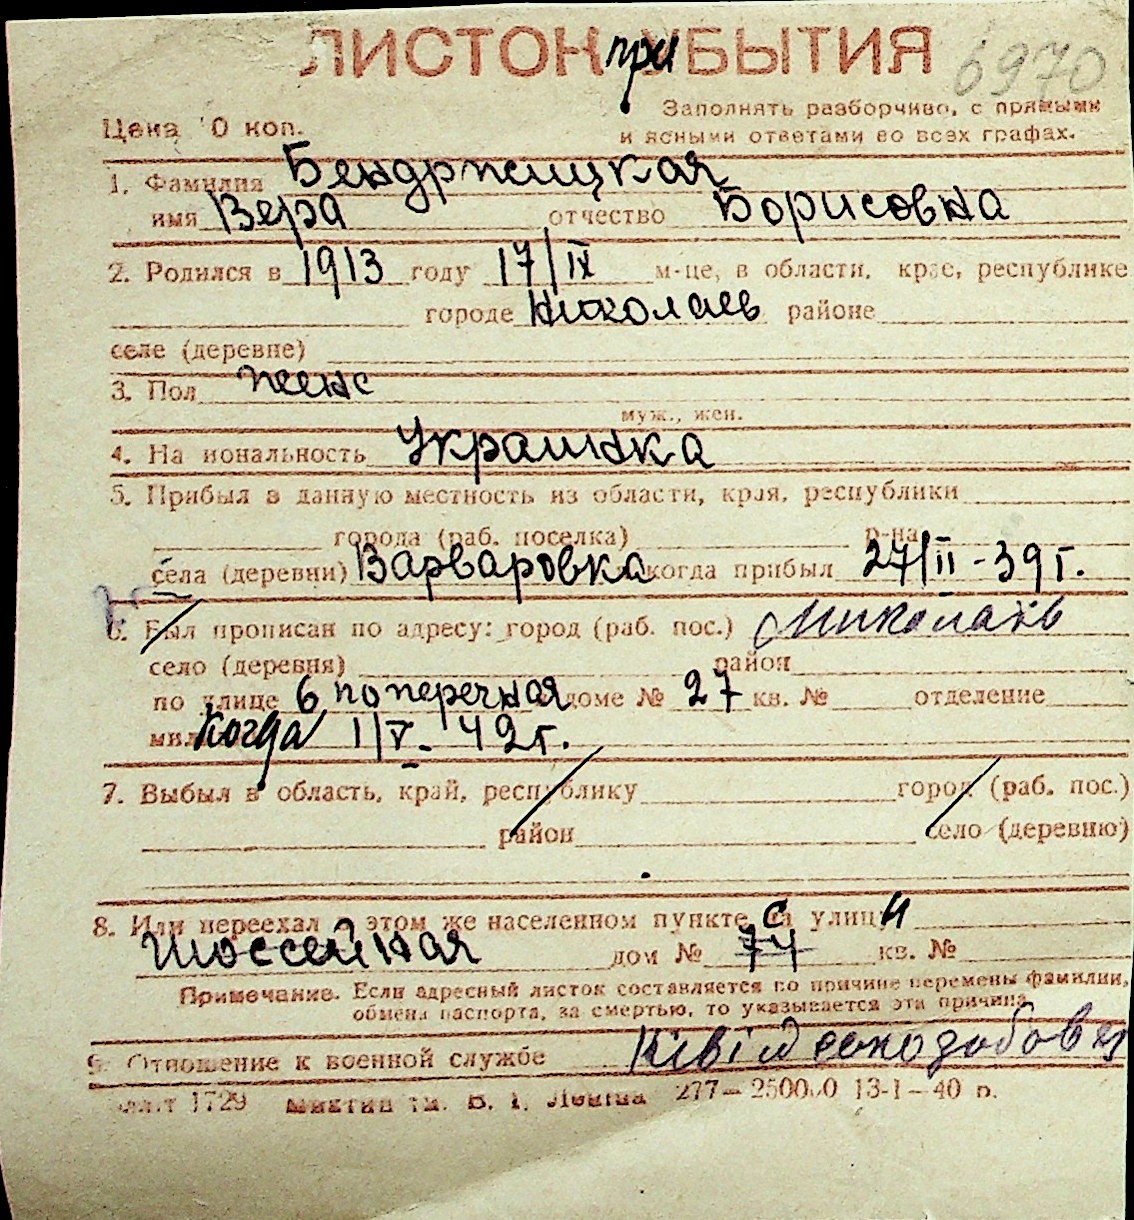 ЛИСТОК при УБЫТИЯ 6970
Заполнять разборчиво, с прямыми
Цена 0 коп. и ясными ответами во всех графах.
1. Фамилия Бендржицкая
имя Вера отчество Борисовна
2. Родился в 1913 году 17/IX м-це, в области, крае, республике
городе Николаев районе
селе (деревне)
3. Пол женс
муж., жен.
4. На иональность Украинка
5. Прибыл в данную местность из области, края, республики
города (раб. поселка) р-на
села (деревни) Варваровка когда прибыл 27/II-39г.
6. Был прописан по адресу: город (раб. пос.) Миколаїв
село (деревня) район
по улице 6 поперечная доме № 27 кв. № отделение
мил когда 1/V-42г.
7. Выбыл в область, край, республику город (раб. пос.)
район село (деревню)
8. Или переехал в этом же населенном пункте с улицы
Шоссейная дом № 74 кв. №
Примечание. Если адресный листок составляется по причине перемены фамилии,
обмена паспорта, за смертью, то указывается эта причина
9. Отношение к военной службе
1729 им. В. І. Леніна 277—250000 13-1—40 р.